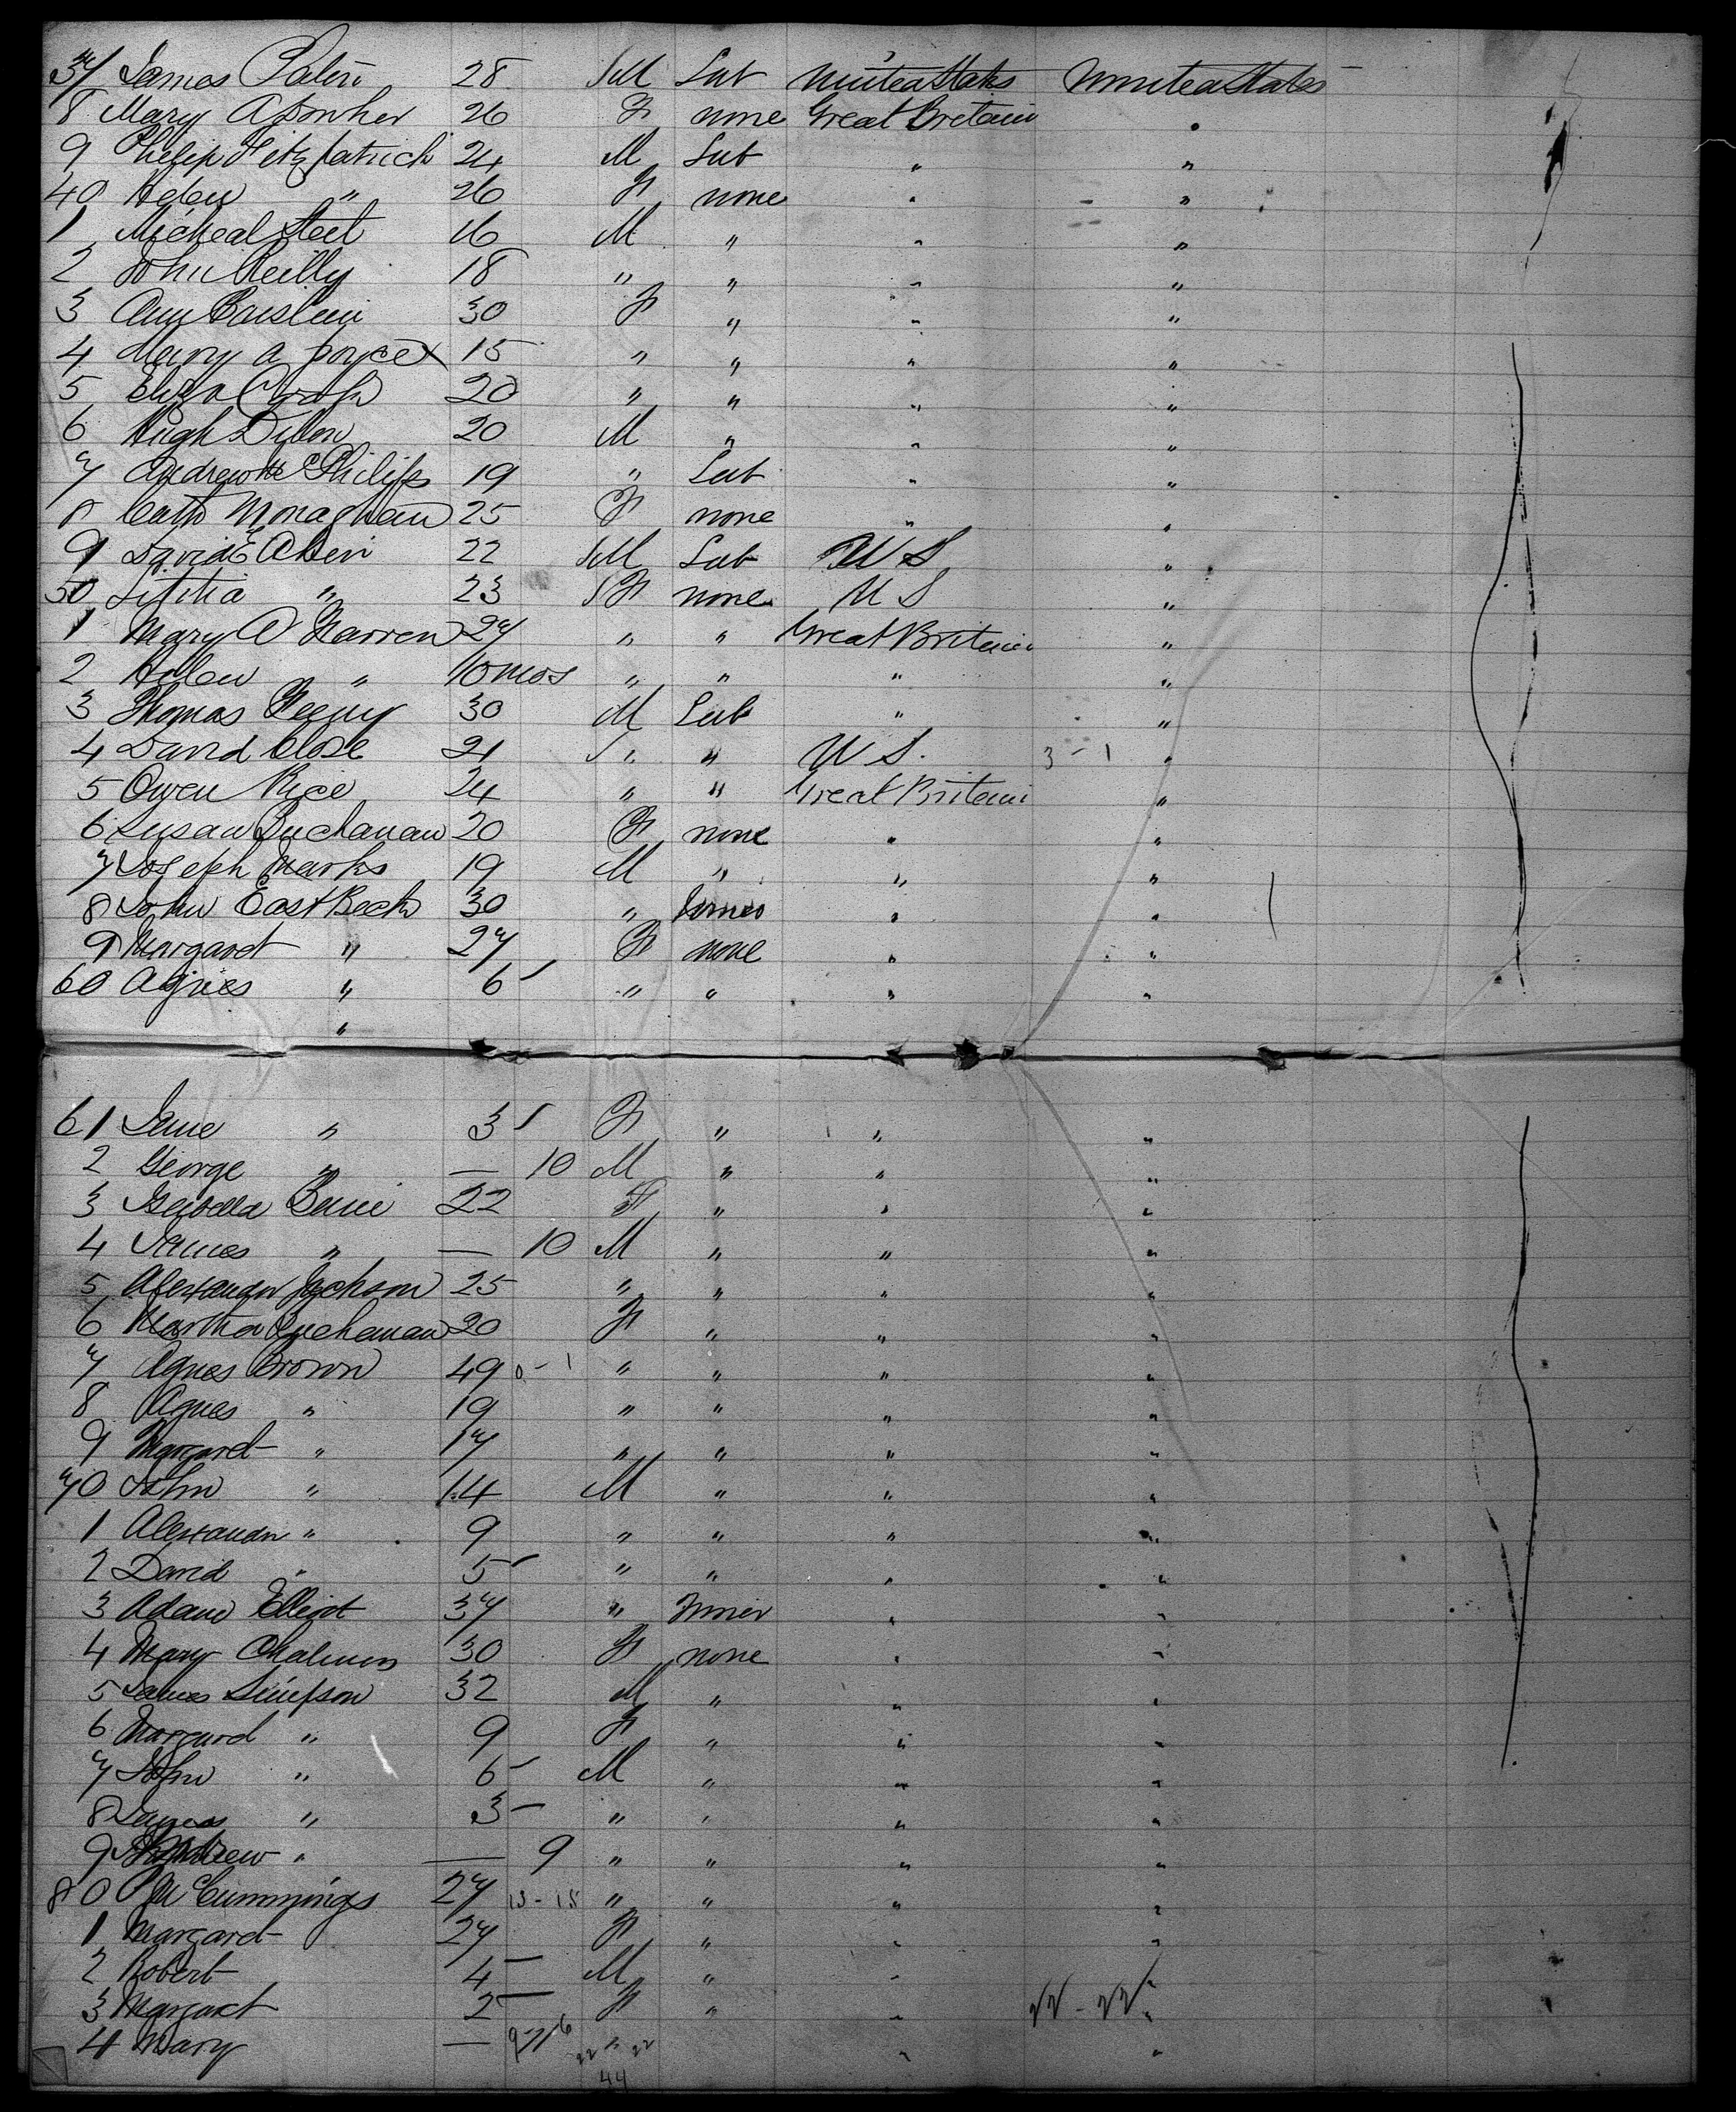 37 James 28 M Lab United States United States
8 Mary A 26 F none Great Britain "
9 Philip Fitzpatrick 24 M Lab " "
40 Helen " 26 F none " "
1 Micheal Steel 16 M " " "
2 John Reilly 18 " " " "
3 Ann 30 F " " "
4 Mary A Joyce x 15 " " " "
5 Eliza 20 " " " "
6 Hugh Dillon 20 M " " "
7 Andrew Philips 19 " Lab " "
8 Cath Monaghan 25 F none " "
9 David 22 M Lab U S "
50 Letitia " 23 F none U S "
1 Mary A Warren 27 " " Great Britain "
2 Helen " 10 mos " " " "
3 Thomas Feeny 30 M Lab " "
4 David Close 21 " " U S. 3 - 1 "
5 Owen Rice 24 " " Great Britain "
6 Susan Buchanan 20 F none " "
7 Joseph Marks 19 M " " "
8 John East Beck 30 " " "
9 Margaret " 27 F none " "
60 Agnes " 6 " " " "
"
61 Jane " 3 F " " "
2 George " — 10 M " " "
3 Isabella 22 F " " "
4 James " — 10 M " " "
5 Alexander Jackson 25 " " " "
6 Martha Buchanan 20 F " " "
7 Agnes Brown 49 0 - 1 " " " "
8 Agnes " 19 " " " "
9 Margaret " 17 " " " "
70 John " 14 M " " "
1 Alexander " 9 " " " "
2 David " 5 " " " "
3 Adam Elliot 37 " " "
4 Mary Chalmers 30 F none " "
5 James Simpson 32 M " " "
6 Margaret " 9 F " " "
7 John " 6 M " " "
8 James " 3 " " " "
9 Andrew " — 9 " " " "
80 McCummings 27 13 - 15 " " " "
1 Margaret 27 F " " "
2 Robert 4 M " " "
3 Margaret 2 F " " 22 - 22 "
4 Mary — 9 " " "
22 22
44